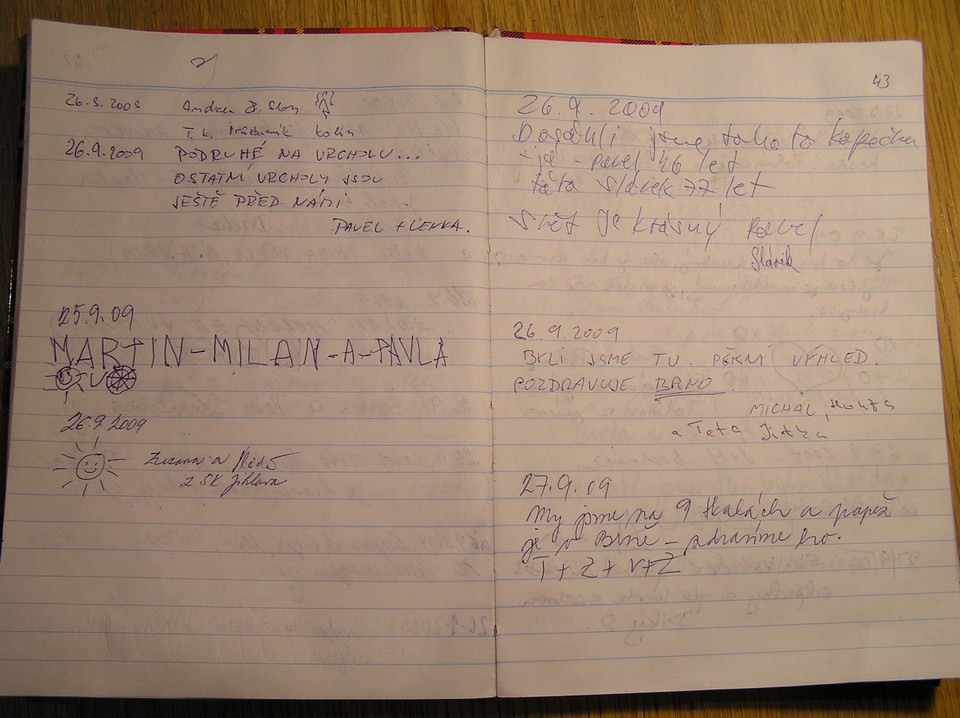 26.9.2009 Andrea
T.k. Kolín
26.9.2009 PODRUHÉ NA VRCHOLU...
OSTATNÍ VRCHOLY JSOU
JEŠTĚ PŘED NÁMI
PAVEL + LENKA.
25.9.09
MARTIN-MILAN-A-PAVLA
TU
26.9.2009
Zuzana a
z SK Jihlava
43
26.9.2009
jsme tohoto kopečku
- já - Pavel 46 let
táta Slávek 77 let
svět je krásný Pavel
Slávik
26.9.2009
BYLI JSME TU. PĚKNÝ VÝHLED.
POZDRAVUJE BRNO
MICHAL, Honza
a Teta Jitka
27.9.09
My jsme na 9 skalách a papež
je v Brně – zdravíme ho.
T + Z + V + Z